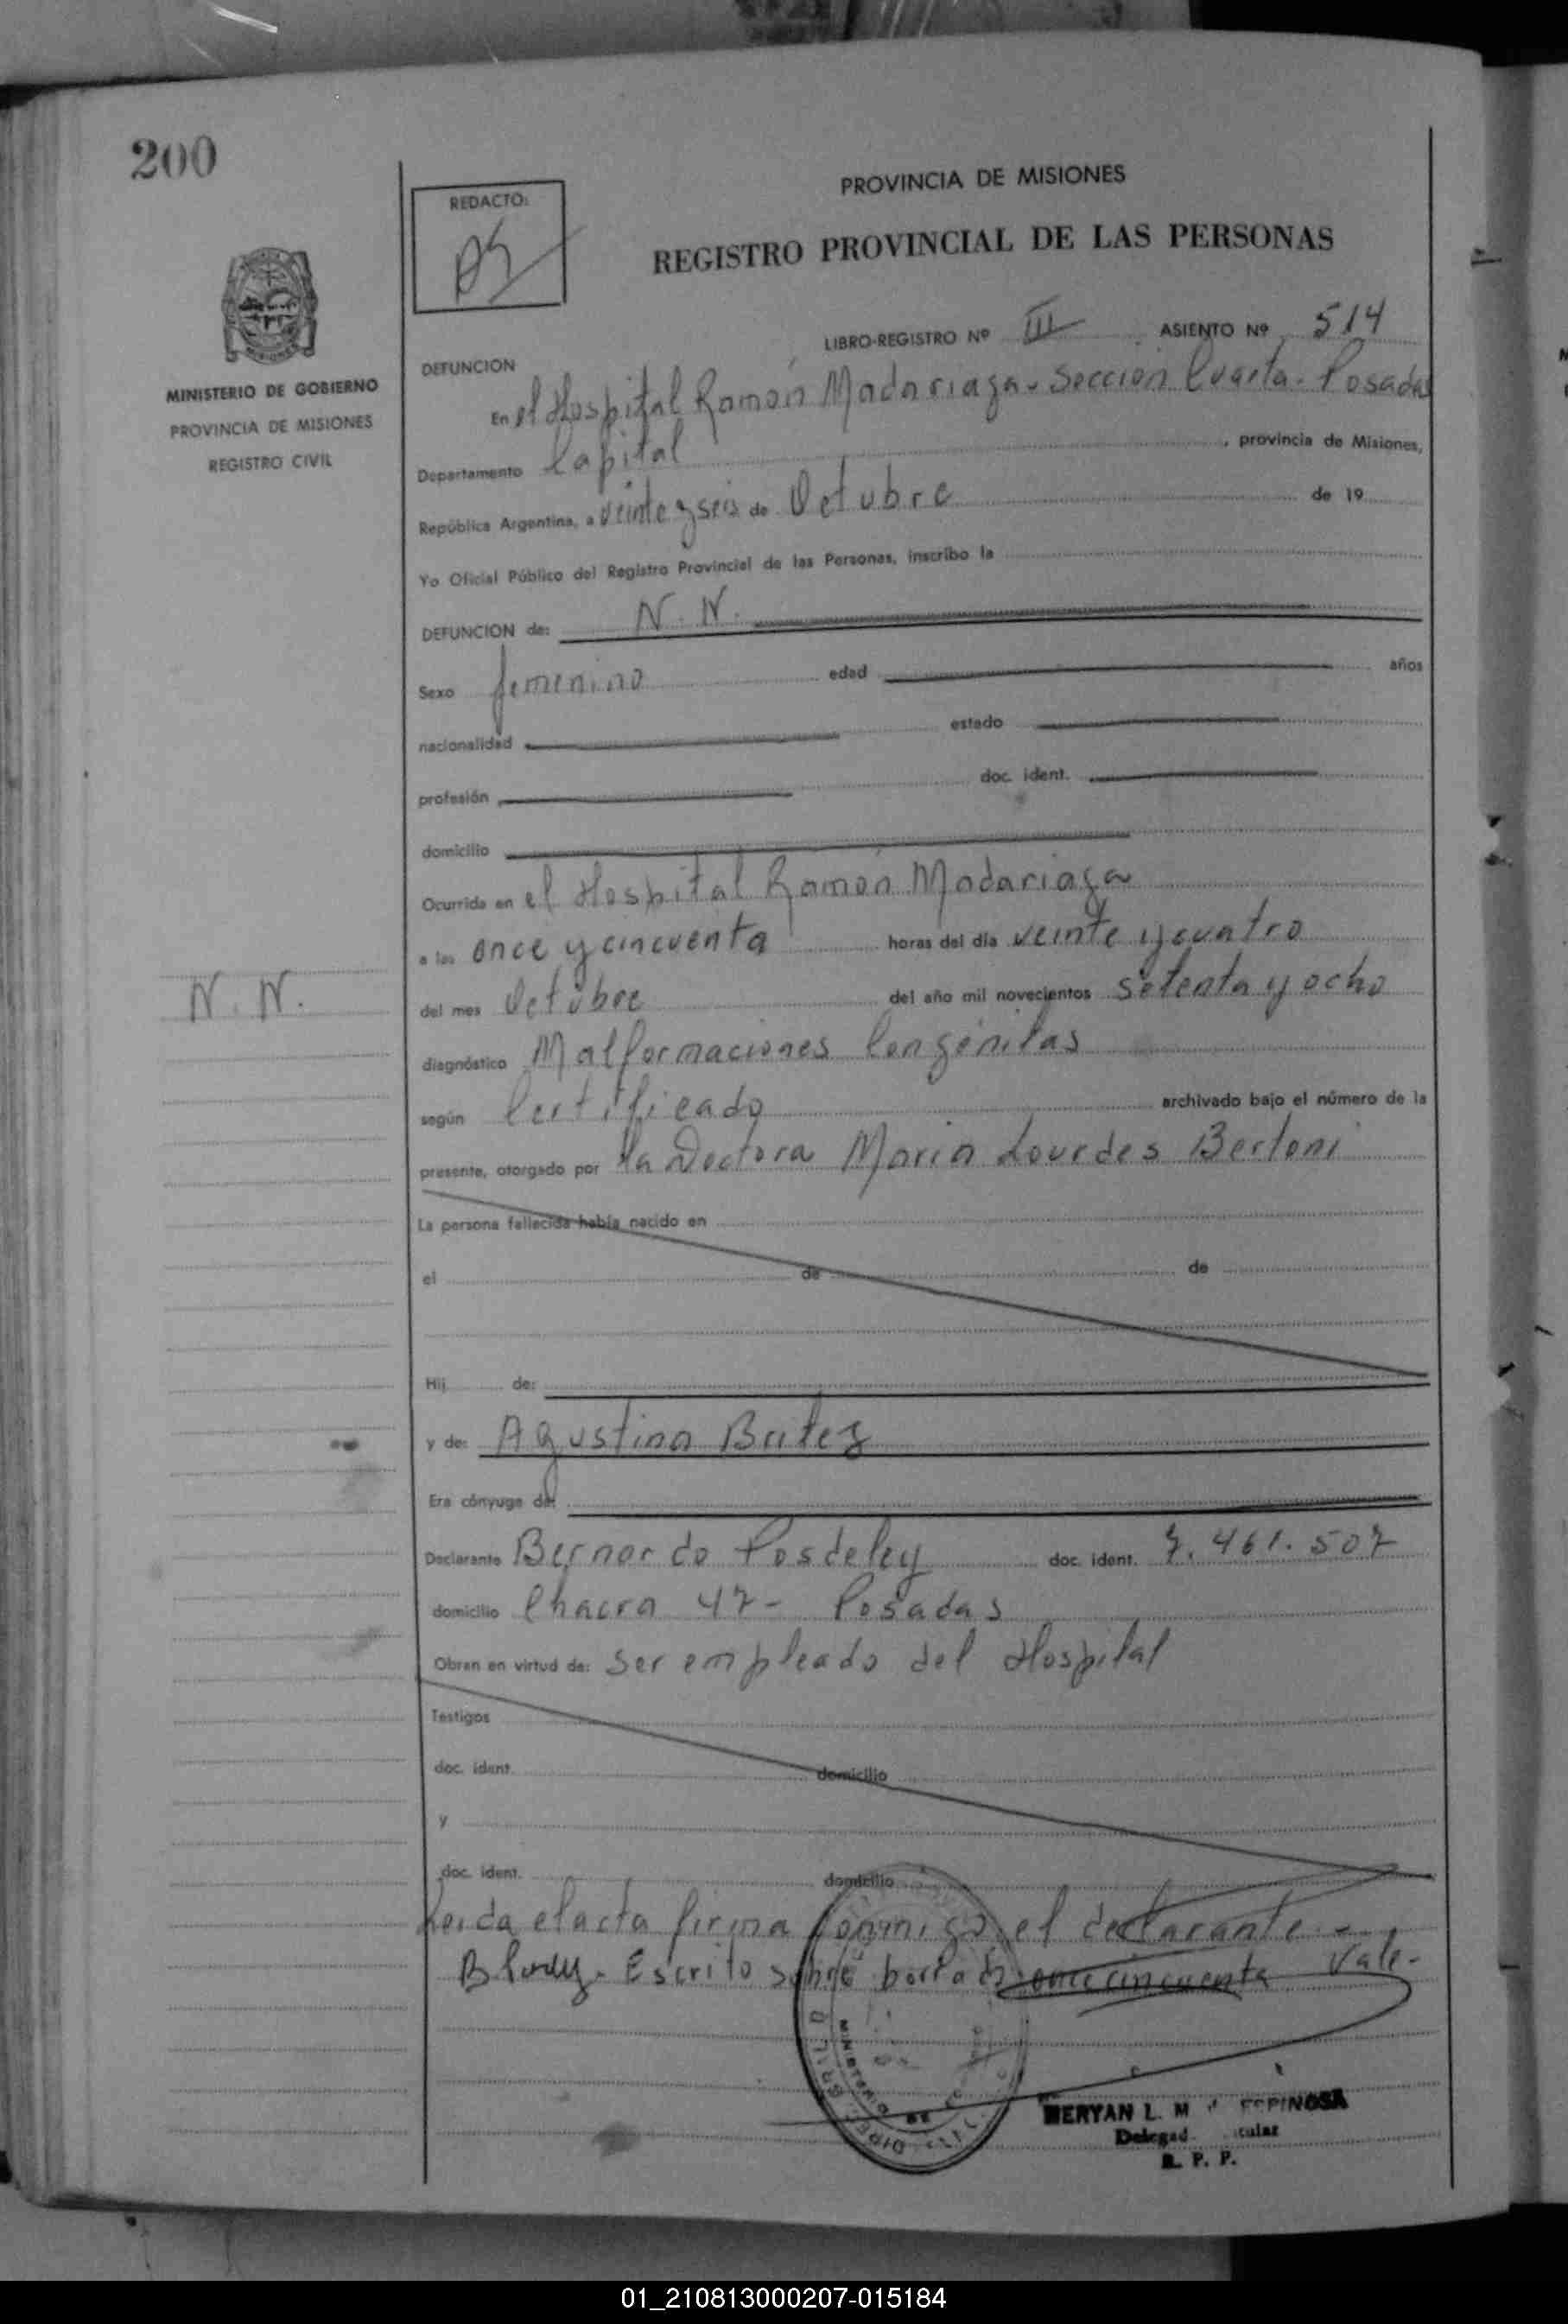 200
PROVINCIA DE MISIONES
REDACTO:
REGISTRO PROVINCIAL DE LAS PERSONAS
LIBRO-REGISTRO Nº III ASIENTO Nº 514
MINISTERIO DE GOBIERNO
PROVINCIA DE MISIONES
REGISTRO CIVIL
DEFUNCION
En el Hospital Ramón Madariaga - Sección Cuarta - Posadas
Departamento Capital, provincia de Misiones,
República Argentina, a veinte y seis de Octubre de 19
Yo Oficial Público del Registro Provincial de las Personas, inscribo la
DEFUNCION de: N. N.
Sexo femenino edad años
nacionalidad estado
profesión doc. ident.
domicilio
Ocurrida en el Hospital Ramón Madariaga
a las once y cincuenta horas del día veinte y cuatro
N. N.
del mes Octubre del año mil novecientos setenta y ocho
diagnóstico Malformaciones Congénitas
según Certificado archivado bajo el número de la
presente, otorgado por la Doctora Maria Lourdes Bertoni
La persona fallecida había nacido en
el de de
Hij de:
y de: Agustina
Era cónyuge de:
Declarante Bernardo doc. ident. 7.461.507
domicilio Chacra 47 - Posadas
Obran en virtud de: ser empleado del Hospital
Testigos
doc. ident. domicilio
y
doc. ident. domicilio
Leida el acta firma conmigo el declarante -
Escrito sobre borrado: once cincuenta Vale -
MINISTERIO DE
ERYAN L. M ESPINOSA
Delegad tular
R. P. P.
01_210813000207-015184